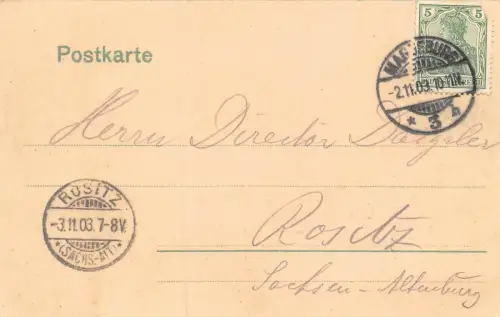 5 5
Postkarte
MAGDEBURG
-2.11.03.10-11V.
* 3 h
Herrn Director
ROSITZ
-3.11.03.7-8V.
*(SACHS.-ALT.)*
Rositz
Sachsen-Altenburg